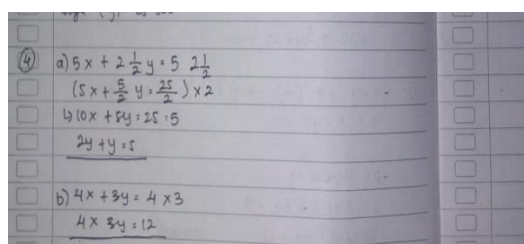 ④ a) 5x + 2 1/2 y = 5 2 1/2
(5x + 5/2 y = 25/2) x 2
↳ 10x + 5y = 25 : 5
2y + y = 5
b) 4x + 3y = 4 x 3
4x 3y = 12